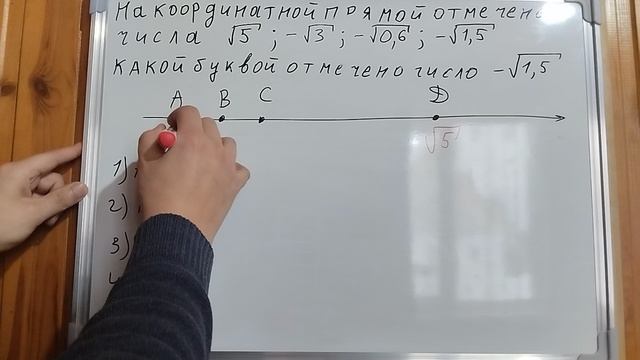 На координатной прямой отмечено
числа √5 ; -√3 ; -√0,6 ; -√1,5
какой буквой отмечено число -√1,5
A B C D
√5
1)
2)
3)